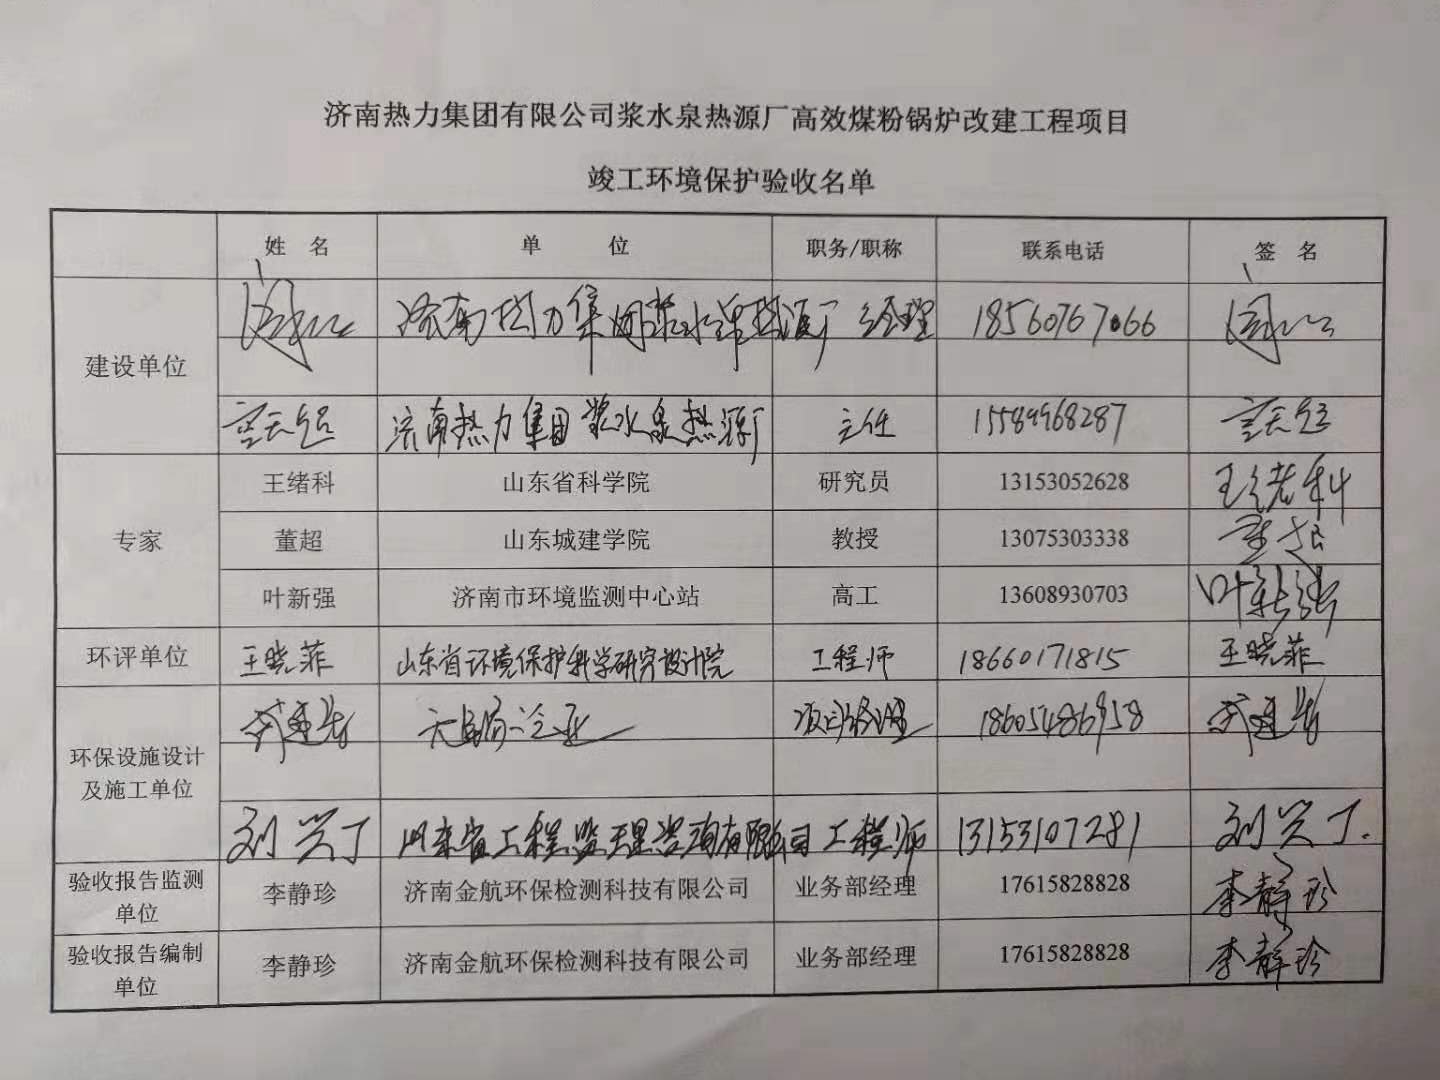 济南热力集团有限公司浆水泉热源厂高效煤粉锅炉改建工程项目
竣工环境保护验收名单
姓 名 单 位 职务/职称 联系电话 签 名
建设单位
济南热力集团浆水泉热源厂 经理 18560767066
济南热力集团浆水泉热源厂 主任 15589968287
专家
王绪科 山东省科学院 研究员 13153052628 王绪科
董超 山东城建学院 教授 13075303338 董超
叶新强 济南市环境监测中心站 高工 13608930703 叶新强
环评单位 王晓菲 山东省环境保护科学研究设计院 工程师 18660171815 王晓菲
环保设施设计
及施工单位
项目经理 18605486958
刘兴丁 山东省工程监理咨询有限公司 工程师 13153107281 刘兴丁
验收报告监测
单位
李静珍 济南金航环保检测科技有限公司 业务部经理 17615828828 李静珍
验收报告编制
单位
李静珍 济南金航环保检测科技有限公司 业务部经理 17615828828 李静珍